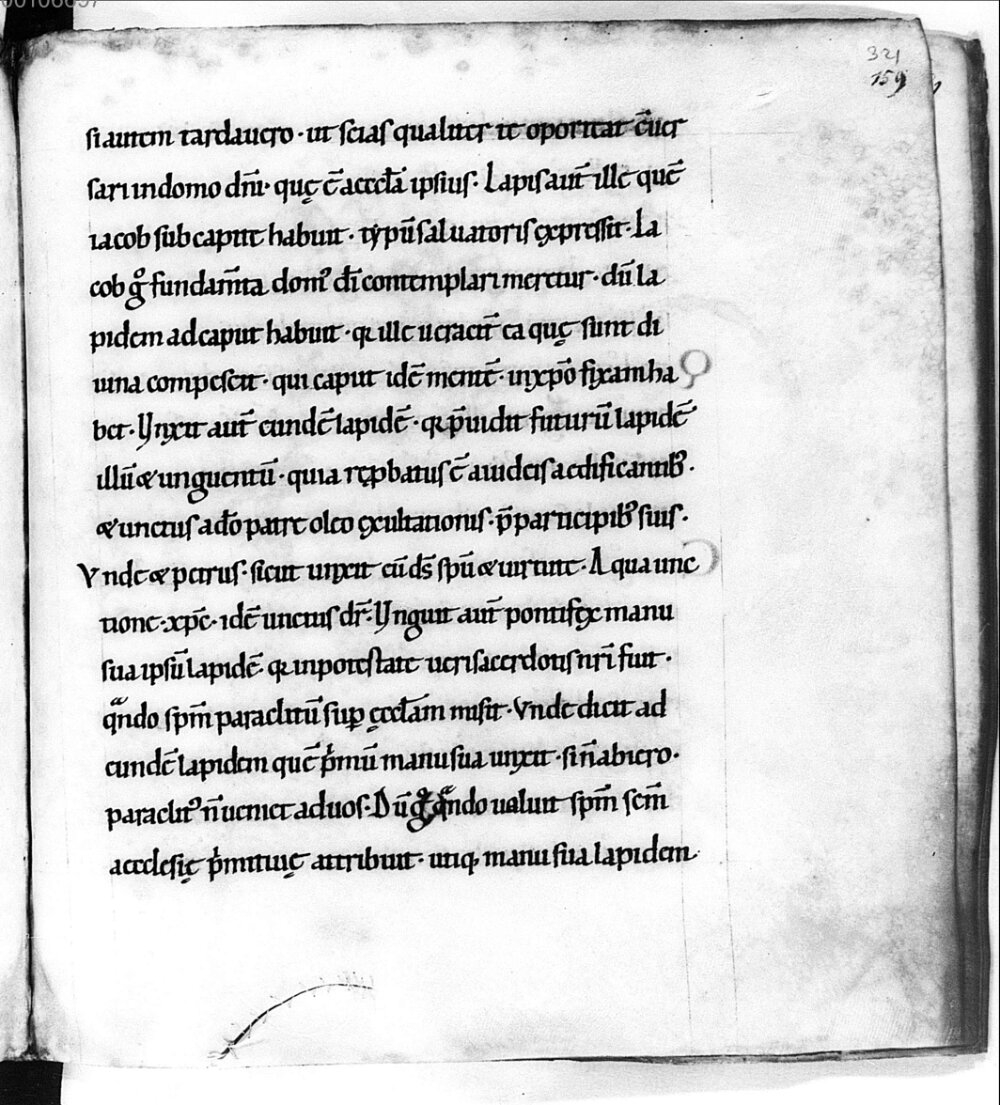 00106697
321
159
si autem tardauero · ut scias qualiter te oporteat c̄uer
sari in domo dn̄i · quę ē aecclā ipsius · Lapis aut̄ ille quē
iacob sub caput habuit · tẏpū saluatoris expressit · Ia
cob g̊ fundam̄ta domꝰ dī contemplari meretur · dū la
pidem ad caput habuit · qꝛ ille ueracit̄ ea quę sunt di
uina compescit · qui caput idē mentē · in xp̄o fixam ha
bet · Vnxit aut̄ eundē lapidē · qꝛ p̄uidit futurū lapidē
illū & unguentū · quia rep̱batus ē a iudeis aedificantibꝰ ·
& unctus a dō patre oleo exultationis · p̄ participibꝰ suis ·
Vnde & petrus · sicut unxit eū ds̄ sp̄u & uirtute · A qua unc
tione · xp̄c · idē unctus dr̄ · Vnguit aut̄ pontifex manu
sua ipsū lapidē · qꝛ in potestate ueri sacerdotis nr̄i fuit ·
qͣndo sp̄m paraclitū suꝑ ęcclām misit · Vnde dicit ad
eundē lapidem quē p̄mū manu sua unxit · si n̄ abiero ·
paraclitꝰ n̄ ueniet ad uos · Dū g̊ qͣndo ualuit sp̄m sc̄m
aecclesię p̄mitiuę attribuit · utiqꝫ manu sua lapidem